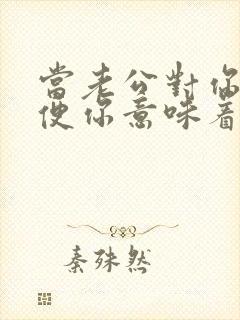 當老公對你
使你意味着
秦殊然